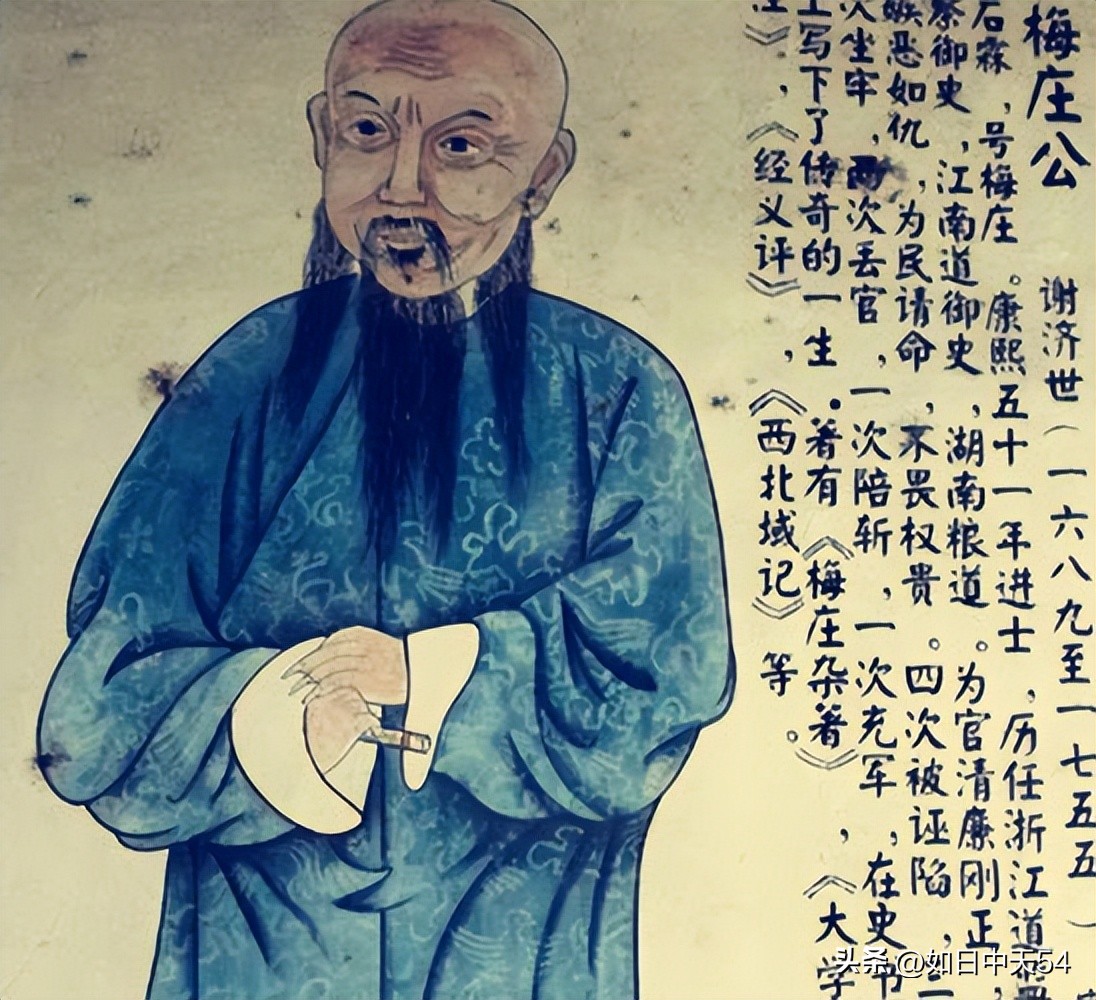 梅庄公 谢济世（一六八九至一七五五）
石霖，号梅庄。康熙五十一年进士，历任浙江道
察御史，江南道御史，湖南粮道。为官清廉刚正，
嫉恶如仇，为民请命，不畏权贵。四次被诬陷，三
次坐牢，两次丢官，一次陪斩，一次充军，在史书
上写下了传奇的一生．著有《梅庄杂著》，《大学
》，《经义评》，《西北域记》等。
头条 @如日中天54